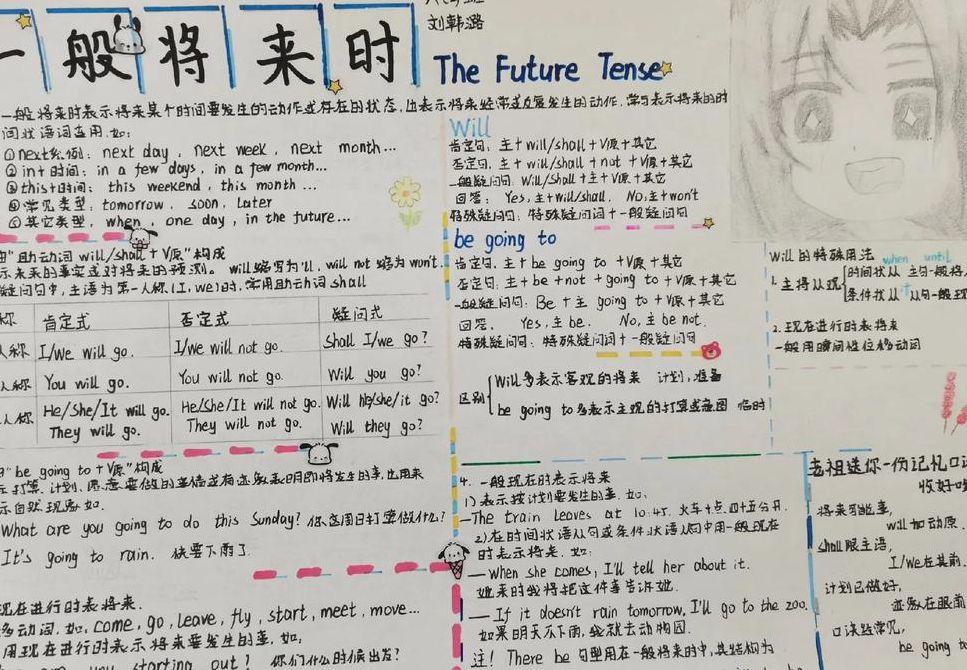 一般将来时
刘韩潞
The Future Tense
一般将来时表示将来某个时间要发生的动作或存在的状态,也表示将来经常或反复发生的动作,常与表示将来的时
间状语词连用,如:
①next系列: next day, next week, next month...
②in+时间: in a few days, in a few month...
③this+时间: this weekend, this month...
④常见类型: tomorrow, soon, later
⑤其它类型, when, one day, in the future...
"助动词 will/shall + V原"构成
示未来的事实或对将来的预测。 will缩写为'll, will not 缩为won't.
疑问句中,主语为第一人称(I, we)时,常用助动词 shall
称 肯定式 否定式 疑问式
人称 I/we will go. I/we will not go. Shall I/we go?
人称 You will go. You will not go. Will you go?
人称 He/She/It will go. He/She/It will not go. Will he/she/it go?
They will go. They will not go. Will they go?
"be going to + V原"构成
打算、计划、愿意要做的事情或有迹象表明即将发生的事,也用来
示自然现象如.
What are you going to do this Sunday? 你这周日打算做什么?
It's going to rain. 快要下雨了.
现在进行时表将来.
移动词,如, come, go, leave, fly, start, meet, move...
用现在进行时表示将来要发生的事,如,
you starting out? 你们什么时候出发?
Will
肯定句, 主+will/shall+V原+其它
否定句, 主+will/shall+not+V原+其它
一般疑问句: Will/Shall+主+V原+其它
回答: Yes, 主+will/shall. No, 主+won't
特殊疑问句: 特殊疑问词+一般疑问句
be going to
肯定句, 主+be going to +V原+其它
否定句: 主+be+not+going to+V原+其它
一般疑问句: Be+主 going to+V原+其它
回答, Yes, 主 be. No, 主 be not.
特殊疑问句: 特殊疑问词+一般疑问句
区别 will多表示客观的将来 计划,准备
be going to多表示主观的打算或意图 临时
4. 一般现在时表示将来
1)表示按计划要发生的事, 如,
—The train leaves at 10:45. 火车十点四十五分开.
2)在时间状语从句或条件状语从句中用一般现在
时表示将来. 如:
—When she comes, I'll tell her about it.
她来时我将把这件事告诉她.
—If it doesn't rain tomorrow, I'll go to the zoo.
如果明天不下雨,我就去动物园.
注! There be 句型用在一般将来时中,其结构为
Will的特殊用法
when until
1. 主将从现 时间状从 主句一般将
条件状从 if 从句一般现
2. 现在进行时表将来
一般用瞬间性位移动词
老祖送你一份记忆口
收好
将来可能事,
will加动原.
shall跟主语,
I/we在其前.
计划已做好,
迹象在眼前
口语经常见,
be going to